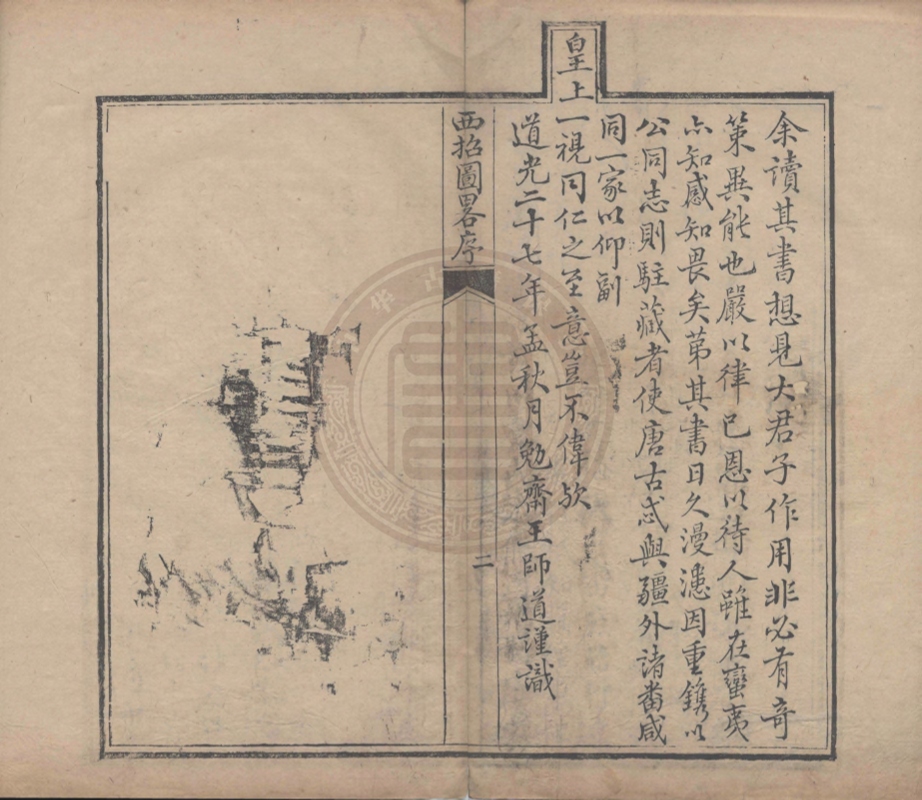 余讀其書想見大君子作用非必有奇
策異能也嚴以律已恩以待人雖在蠻夷
亦知感知畏矣苐其書日久漫漶因重鐫以
公同志則駐藏者使唐古忒與疆外諸番咸
同一家以仰副
皇上一視同仁之至意豈不偉歟
道光二十七年孟秋月勉齋王師道謹識
西招圖畧序
二